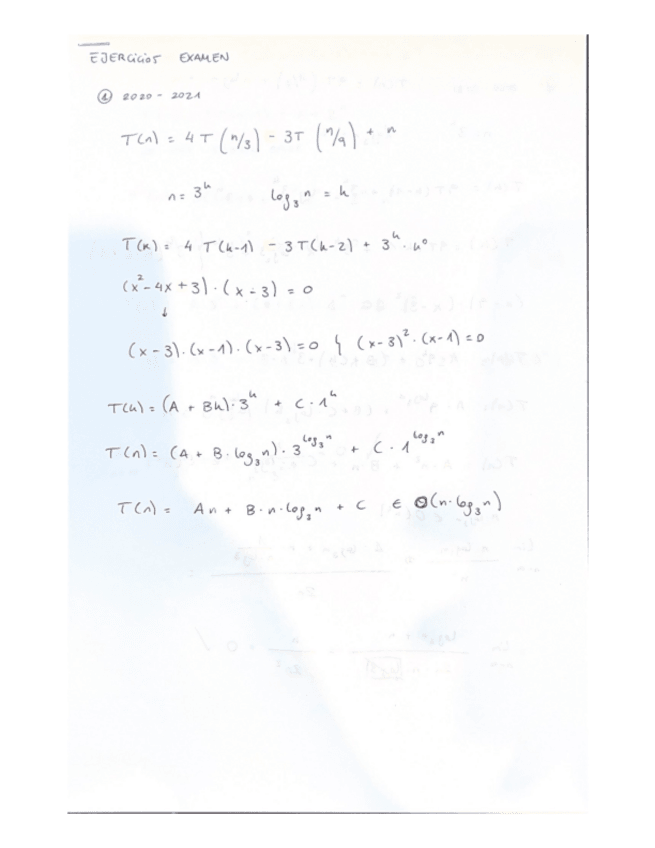 EJERCICIOS EXAMEN
① 2020 - 2021
T(n) = 4T(n/3) - 3T(n/9) + n
n = 3^k log₃ n = k
T(k) = 4 T(k-1) - 3T(k-2) + 3^k · k⁰
(x² - 4x + 3) · (x - 3) = 0
↓
(x - 3) · (x - 1) · (x - 3) = 0 (x - 3)² · (x - 1) = 0
T(k) = (A + Bk) · 3^k + C · 1^k
T(n) = (A + B · log₃ n) · 3^log₃ n + C · 1^log₃ n
T(n) = An + B · n · log₃ n + C ∈ Θ(n · log₃ n)